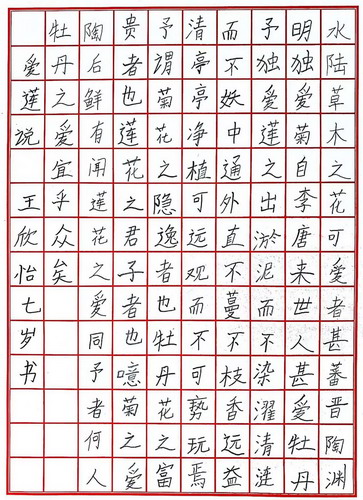 水陆草木之花可爱者甚蕃晋陶渊
明独爱菊自李唐来世人甚爱牡丹
予独爱莲之出淤泥而不染濯清涟
而不妖中通外直不蔓不枝香远益
清亭亭净植可远观而不可亵玩焉
予谓菊花之隐逸者也牡丹花之富
贵者也莲花之君子者也噫菊之爱
陶后鲜有闻莲花之爱同予者何人
牡丹之爱宜乎众矣
爱莲说 王欣怡七岁书